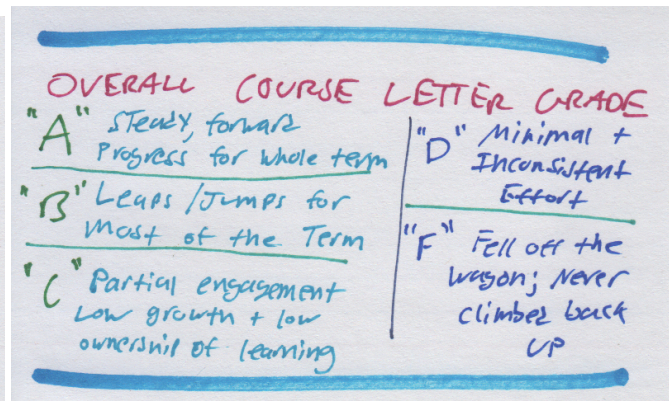 OVERALL COURSE LETTER GRADE
"A" Steady, forward
Progress for whole term
"B" Leaps/Jumps for
Most of the Term
"C" Partial engagement
Low growth + low
ownership of learning
"D" Minimal +
Inconsistent
Effort
"F" Fell off the
wagon; never
climbed back
UP